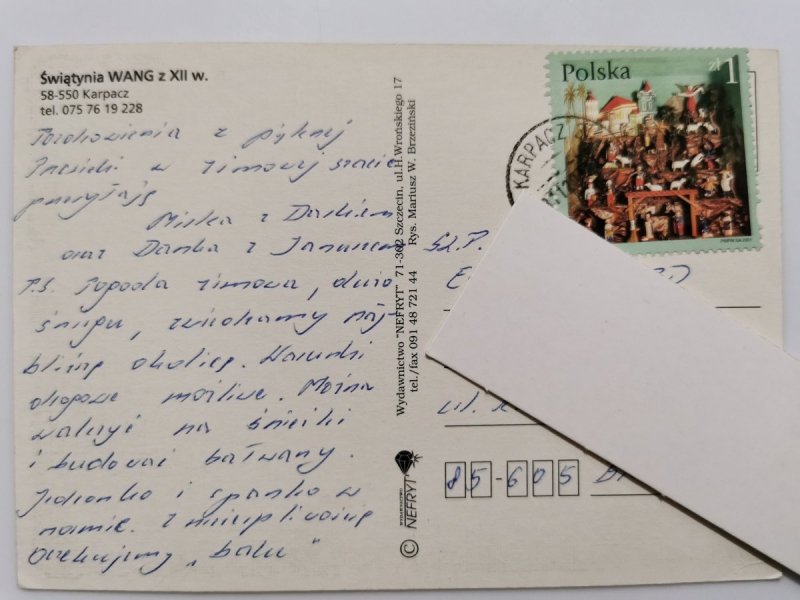 Świątynia WANG z XII w.
58-550 Karpacz
tel. 075 76 19 228
Pozdrowienia z pięknej
w zimowej szacie
Miśka z Darkiem
oraz Danka z Januszem
P.S. Pogoda zimowa, dużo
śniegu, zwiedzamy naj
bliższą okolicę. Warunki
drogowe możliwe. Można
walczyć na śnieżki
i budować bałwany.
Jedzonko i spanko w
normie. Z niecierpliwością
oczekujemy „balu"
Wydawnictwo "NEFRYT" 71-302 Szczecin, ul.H.Wrońskiego 17
tel./fax 091 48 721 44 Rys. Mariusz W. Brzeziński
©
WYDAWNICTWO
NEFRYT
Polska
zł 1
KARPACZ
PWPW SA 2001
Sz.P.
ul.
85-605